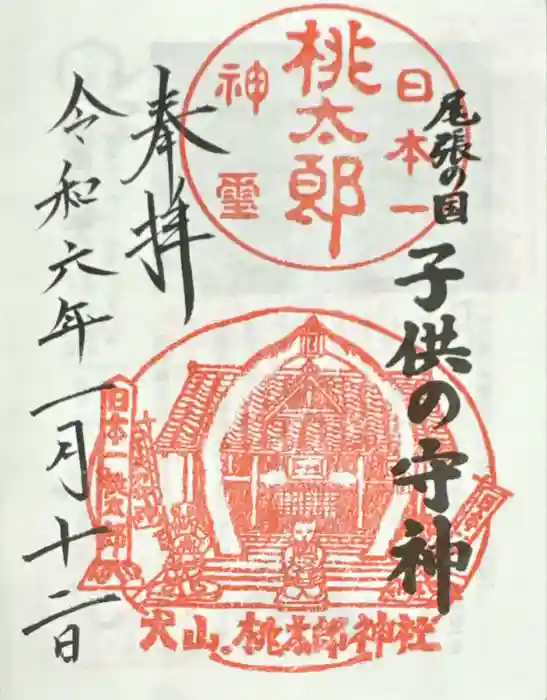 尾張の国
子供の守神
日本一
桃太郎
神霊
奉拝
令和六年一月十二日
日本一桃太郎
犬山。桃太郎神社